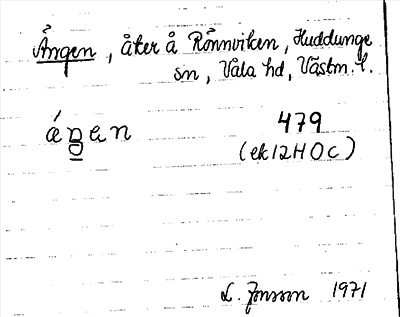 Ången, åker å Rönnviken, Huddunge
sn, Våla hd, Västm. l.
áŋ̱en 479
(ek12H0c)
L. Jonsson 1971